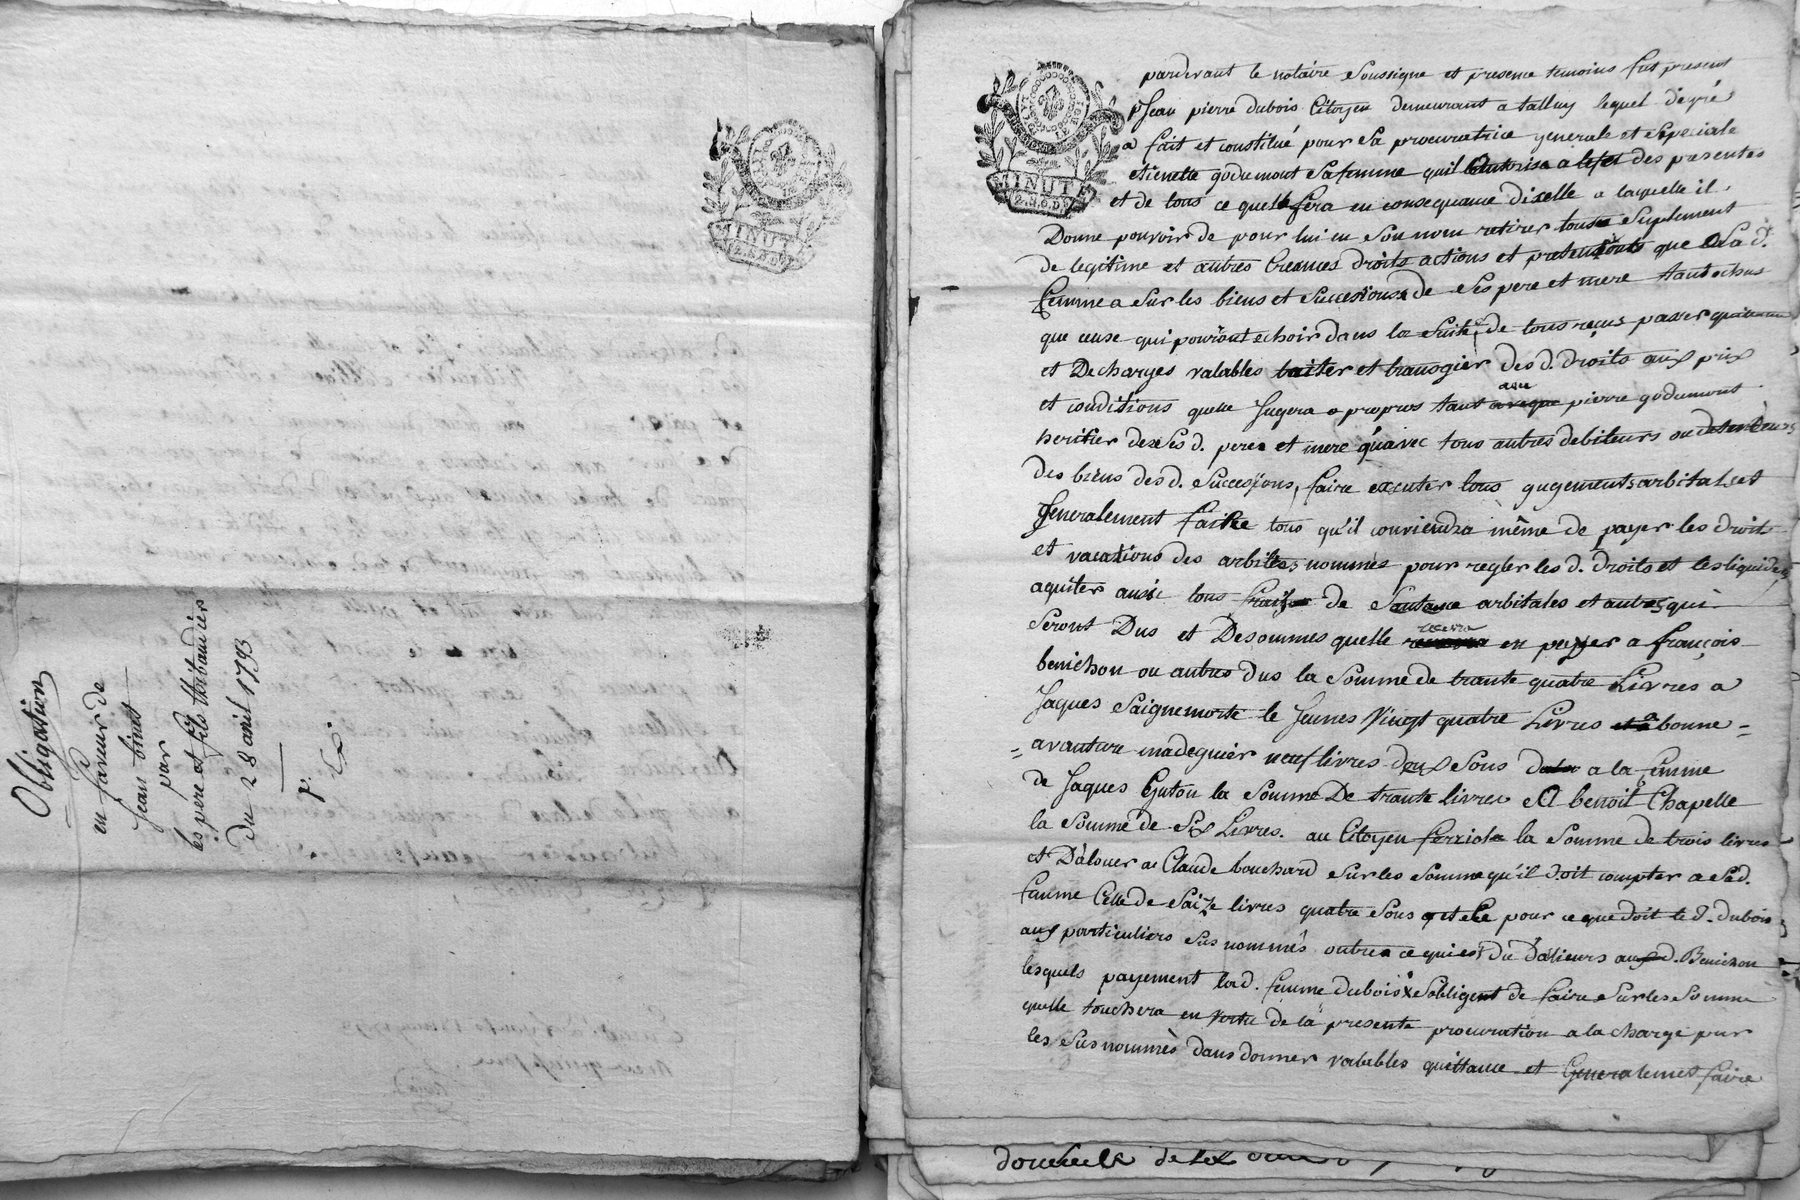 MINUTE
Obligation
en faveur de
Jean binet
par
les pere et fils thibaudiers
Du 28 avril 1793
MINUTE
2.S.6.D.
pardevant le notaire soussigne et presence temoins fut present
Jean pierre dubois Citoyen demeurant a talluy lequel de gré
a fait et constitué pour sa procuratrice generale et speciale
etienette godumont sa femme qu'il autorise a lefet des presentes
et de tous ce quelle fera en consequance dicelle a laquelle il
Donne pouvoir de pour lui en son nom retirer tous suplement
de legitime et autres creances droits actions et pretentions que la d.
femme a sur les biens et successions de ses pere et mere tant echus
que ceuse qui pouront echoir dans la suite, de tous reçus passer quittance
et Decharges valables traiter et transgier des d. droits aux prix
et conditions quelle Jugera a propros tant avec pierre godumont
heritier de ses d. pere et mere qu'avec tous autres debiteurs ou detenteurs
des biens des d. successions, faire executer tous gugements arbitales et
Generalement faire tous qu'il conviendra même de payer les droits
et vacations des arbitres nommés pour regler les d. droits et les liquider
aquiter ausi tous frais de santance arbitales et autres qui
seront Dus et Desommes quelle recevra en payer a françois
benichon ou autres dus la somme de trante quatre Livres a
Jaques saignemorte le Jeunes vingt quatre Livres a bonne =
= avanture inadeguier neuf livres deux sous a la femme
de Jaques Guton la somme De trante livres et A benoit Chapelle
la somme de six Livres. au Citoyen ferriole la somme de trois livres
et D'alouer a Claude bouchard sur les somme qu'il doit compter a sad.
famme Celle de saize livres quatre sous pour ce que doit le d. dubois
aux particuliers sus nommés outre ce qui est du D'alieurs aux d. Benichon
lesquels payement lad. femme dubois s'obligent de faire sur les somme
quelle touchera en vertu de la presente procuration a la charge par
les sus nommés dans donner valables quittance et Generalement faire